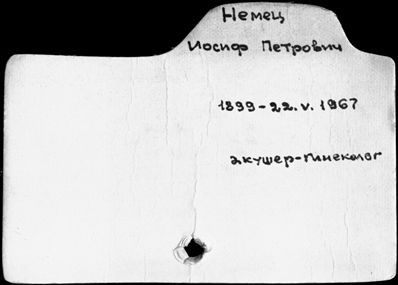 Немец
Иосиф Петрович
1899-22.V.1967
акушер-гинеколог